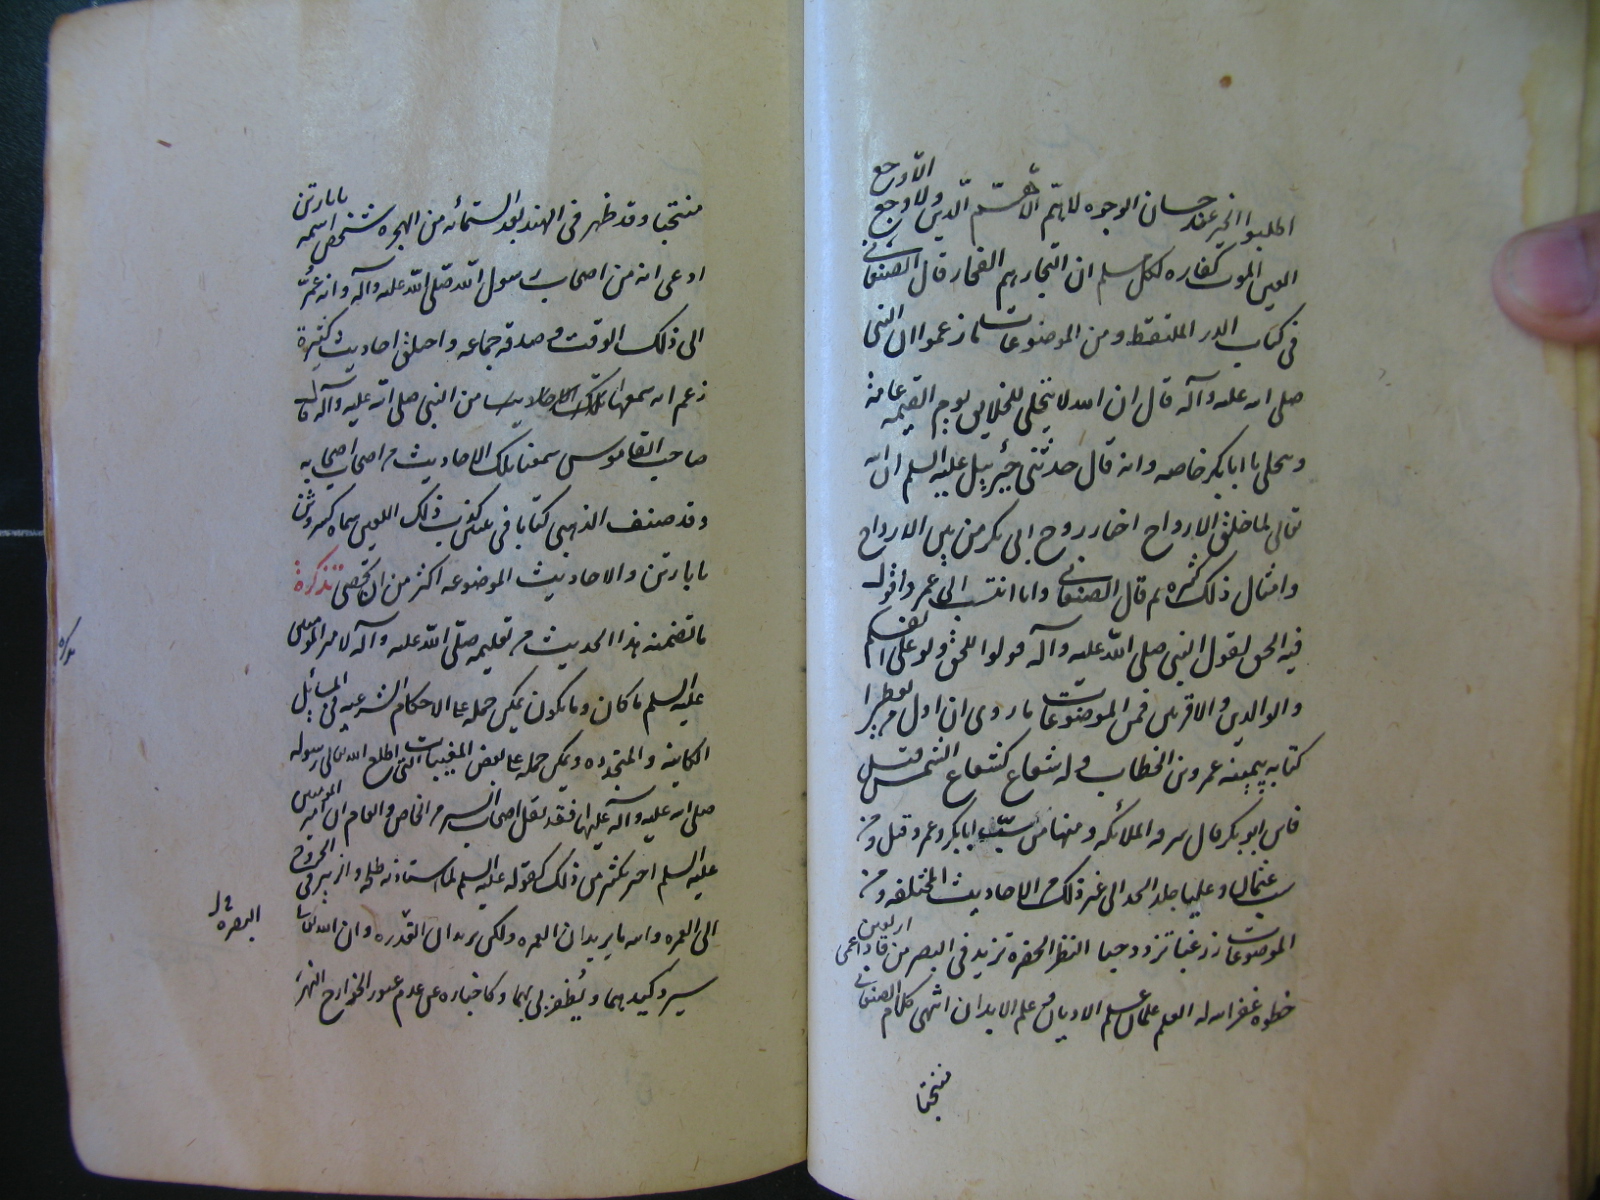 اطلبوا الخير عند حسان الوجوه لا هم الا هم الدين ولا وجع الا وجع
العين الموت كفاره لكل مسلم ان التجار هم الفجار قال الصنعانى
فى كتاب الدر الملتقط ومن الموضوعات ما زعموا ان النبى
صلى الله عليه وآله قال ان الله لا يتجلى للخلايق يوم القيمه عامة
ويتجلى يا ابا بكر خاصه وانه قال حدثنى جبرئيل عليه السلم ان الله
تعالى لما خلق الارواح اختار روح ابى بكر من بين الارواح
وامثال ذلك كثيره ثم قال الصنعانى وانا انتسب الى عمر واقول
فيه الحق لقول النبى صلى الله عليه وآله قولوا الحق ولو على انفسكم
والوالدين والاقربين فمن الموضوعات ما روى ان اول من يعطى
كتابه بيمينه عمر بن الخطاب وله شعاع كشعاع الشمس قيل
فاين ابو بكر قال سرقه الملائكه ومنها من سب ابا بكر وعمر قتل ومن
سب عثمان وعليا جلد الحد الى غير ذلك من الاحاديث المختلفه ومن
الموضوعات زر غبا تزدد حبا النظر الى الخضره تزيد فى البصر من قاد اعمى اربعين
خطوه غفر الله له العلم علمان علم الاديان وعلم الابدان انتهى كلام الصنعانى
منتخبا
منتخبا وقد ظهر فى الهند بعد الستمائه من الهجره شخص اسمه بابا رتن
ادعى انه من اصحاب رسول الله صلى الله عليه وآله وانه عمر
الى ذلك الوقت وصدقه جماعه واختلق احاديث كثيرة
زعم انه سمعها من النبى صلى الله عليه وآله قال
صاحب القاموس سمعنا تلك الاحاديث من اصحاب اصحابه
وقد صنف الذهبى كتابا فى تبيين كذب ذلك اللعين سماه كسر وثن
بابا رتن والاحاديث الموضوعه اكثر من ان تحصى تذكرة
ما تضمنه هذا الحديث من تعليمه صلى الله عليه وآله لامير المؤمنين
عليه السلم ما كان وما يكون يمكن حمله على الاحكام الشرعيه فى المسائل
الكاينه والمتجدده ويمكن حمله على بعض المغيبات التى اطلع الله تعالى رسوله
صلى الله عليه وآله عليها فقد نقل اصحاب السير من الخاص والعام ان امير المؤمنين
عليه السلم اخبر بكثير من ذلك كقوله عليه السلم لما استاذنه طلحه والزبير فى الخروج
الى العمره والله ما يريدان العمره ولكن يريدان البصره وان الله تعالى
سيرد كيدهما ويظفرنى بهما وكاخباره عن عدم عبور الخوارج النهر
البصره